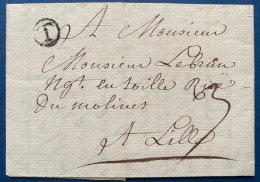 I
A Monsieur
Monsieur Lebrun
Ngt. en toille Rüe
Du molines
3
A Lille